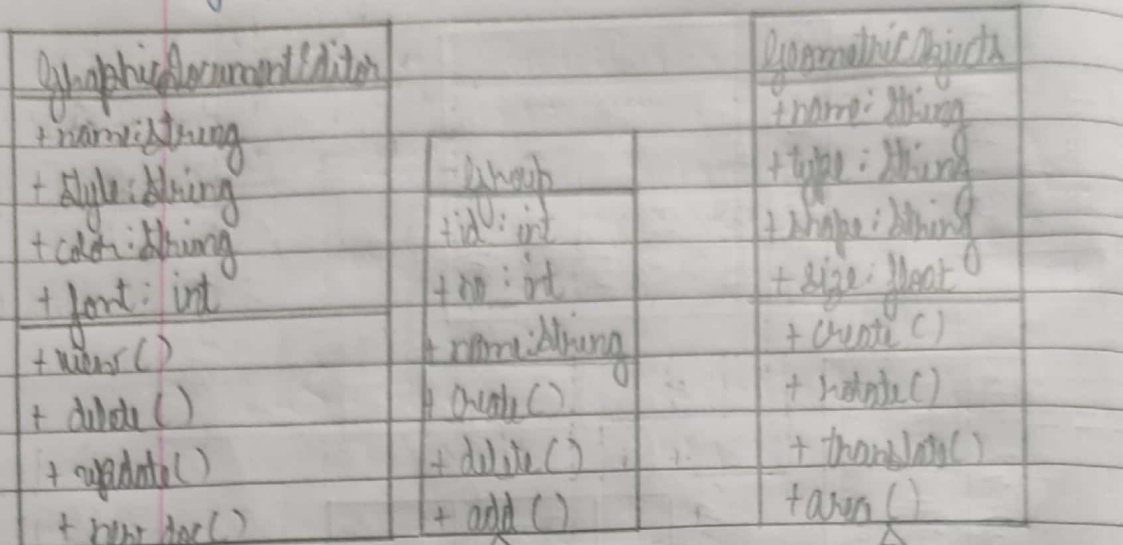 GraphicDocumentEditor
+ name: String
+ Style: String
+ color: String
+ font: int
+ view()
+ delete()
+ update()
+ new doc()
Group
+ id: int
+ no: int
+ name: String
+ create()
+ delete()
+ add()
GeometricObjects
+ name: String
+ type: String
+ shape: String
+ size: float
+ create()
+ rotate()
+ translate()
+ area()